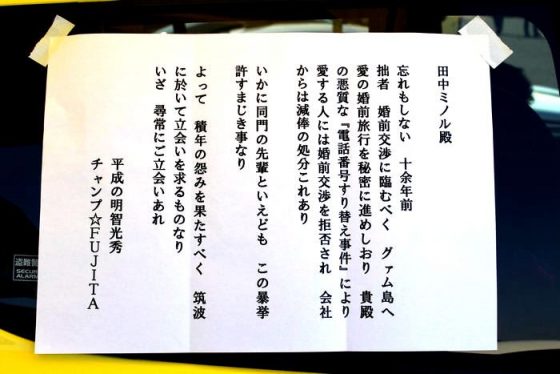 田中ミノル殿
忘れもしない　十余年前
拙者　婚前交渉に臨むべく　グァム島へ
愛の婚前旅行を秘密に進めしおり　貴殿
の悪質な『電話番号すり替え事件』により
愛する人には婚前交渉を拒否され　会社
からは減俸の処分これあり
いかに同門の先輩といえども　この暴挙
許すまじき事なり
よって　積年の怨みを果たすべく　筑波
に於いて立会いを求るものなり
いざ　尋常にご立会いあれ
平成の明智光秀
チャンプ☆FUJITA
盗難警
SECUR
ALARM